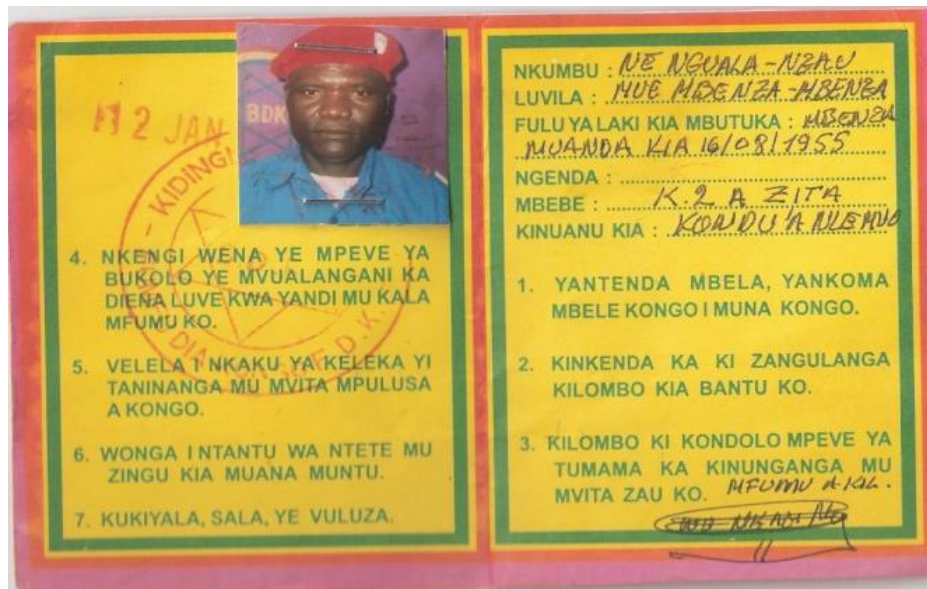 12 JAN
BDK
KIDINGI
4. NKENGI WENA YE MPEVE YA
BUKOLO YE MVUALANGANI KA
DIENA LUVE KWA YANDI MU KALA
MFUMU KO.
5. VELELA I NKAKU YA KELEKA YI
TANINANGA MU MVITA MPULUSA
A KONGO.
6. WONGA I NTANTU WA NTETE MU
ZINGU KIA MUANA MUNTU.
7. KUKIYALA, SALA, YE VULUZA.
NKUMBU : NE NGUALA-NZAU
LUVILA : MUE MBENZA-MBENZA
FULU YA LAKI KIA MBUTUKA : MBENZA
MUANDA KIA 16/08/1955
NGENDA :
MBEBE : K.2 A ZITA
KINUANU KIA : KONDU'A
1. YANTENDA MBELA, YANKOMA
MBELE KONGO I MUNA KONGO.
2. KINKENDA KA KI ZANGULANGA
KILOMBO KIA BANTU KO.
3. KILOMBO KI KONDOLO MPEVE YA
TUMAMA KA KINUNGANGA MU
MVITA ZAU KO. MFUMU A KIL.